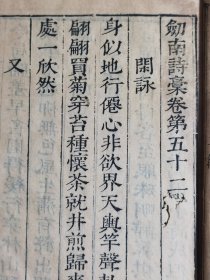 劒南詩稾卷第五十二
閑詠
身似地行僊心非欲界天輿竿聲
翩翩買菊穿苔種懷茶就井煎歸
處一欣然
又